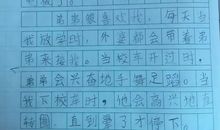 弟弟很喜欢我，每天当
我放学时，外婆都会带着弟
弟来接我。当校车开过时，
弟弟会兴奋地手舞足蹈。当
我下校车时，他会高兴地在
转圈，直到晕了才停下。